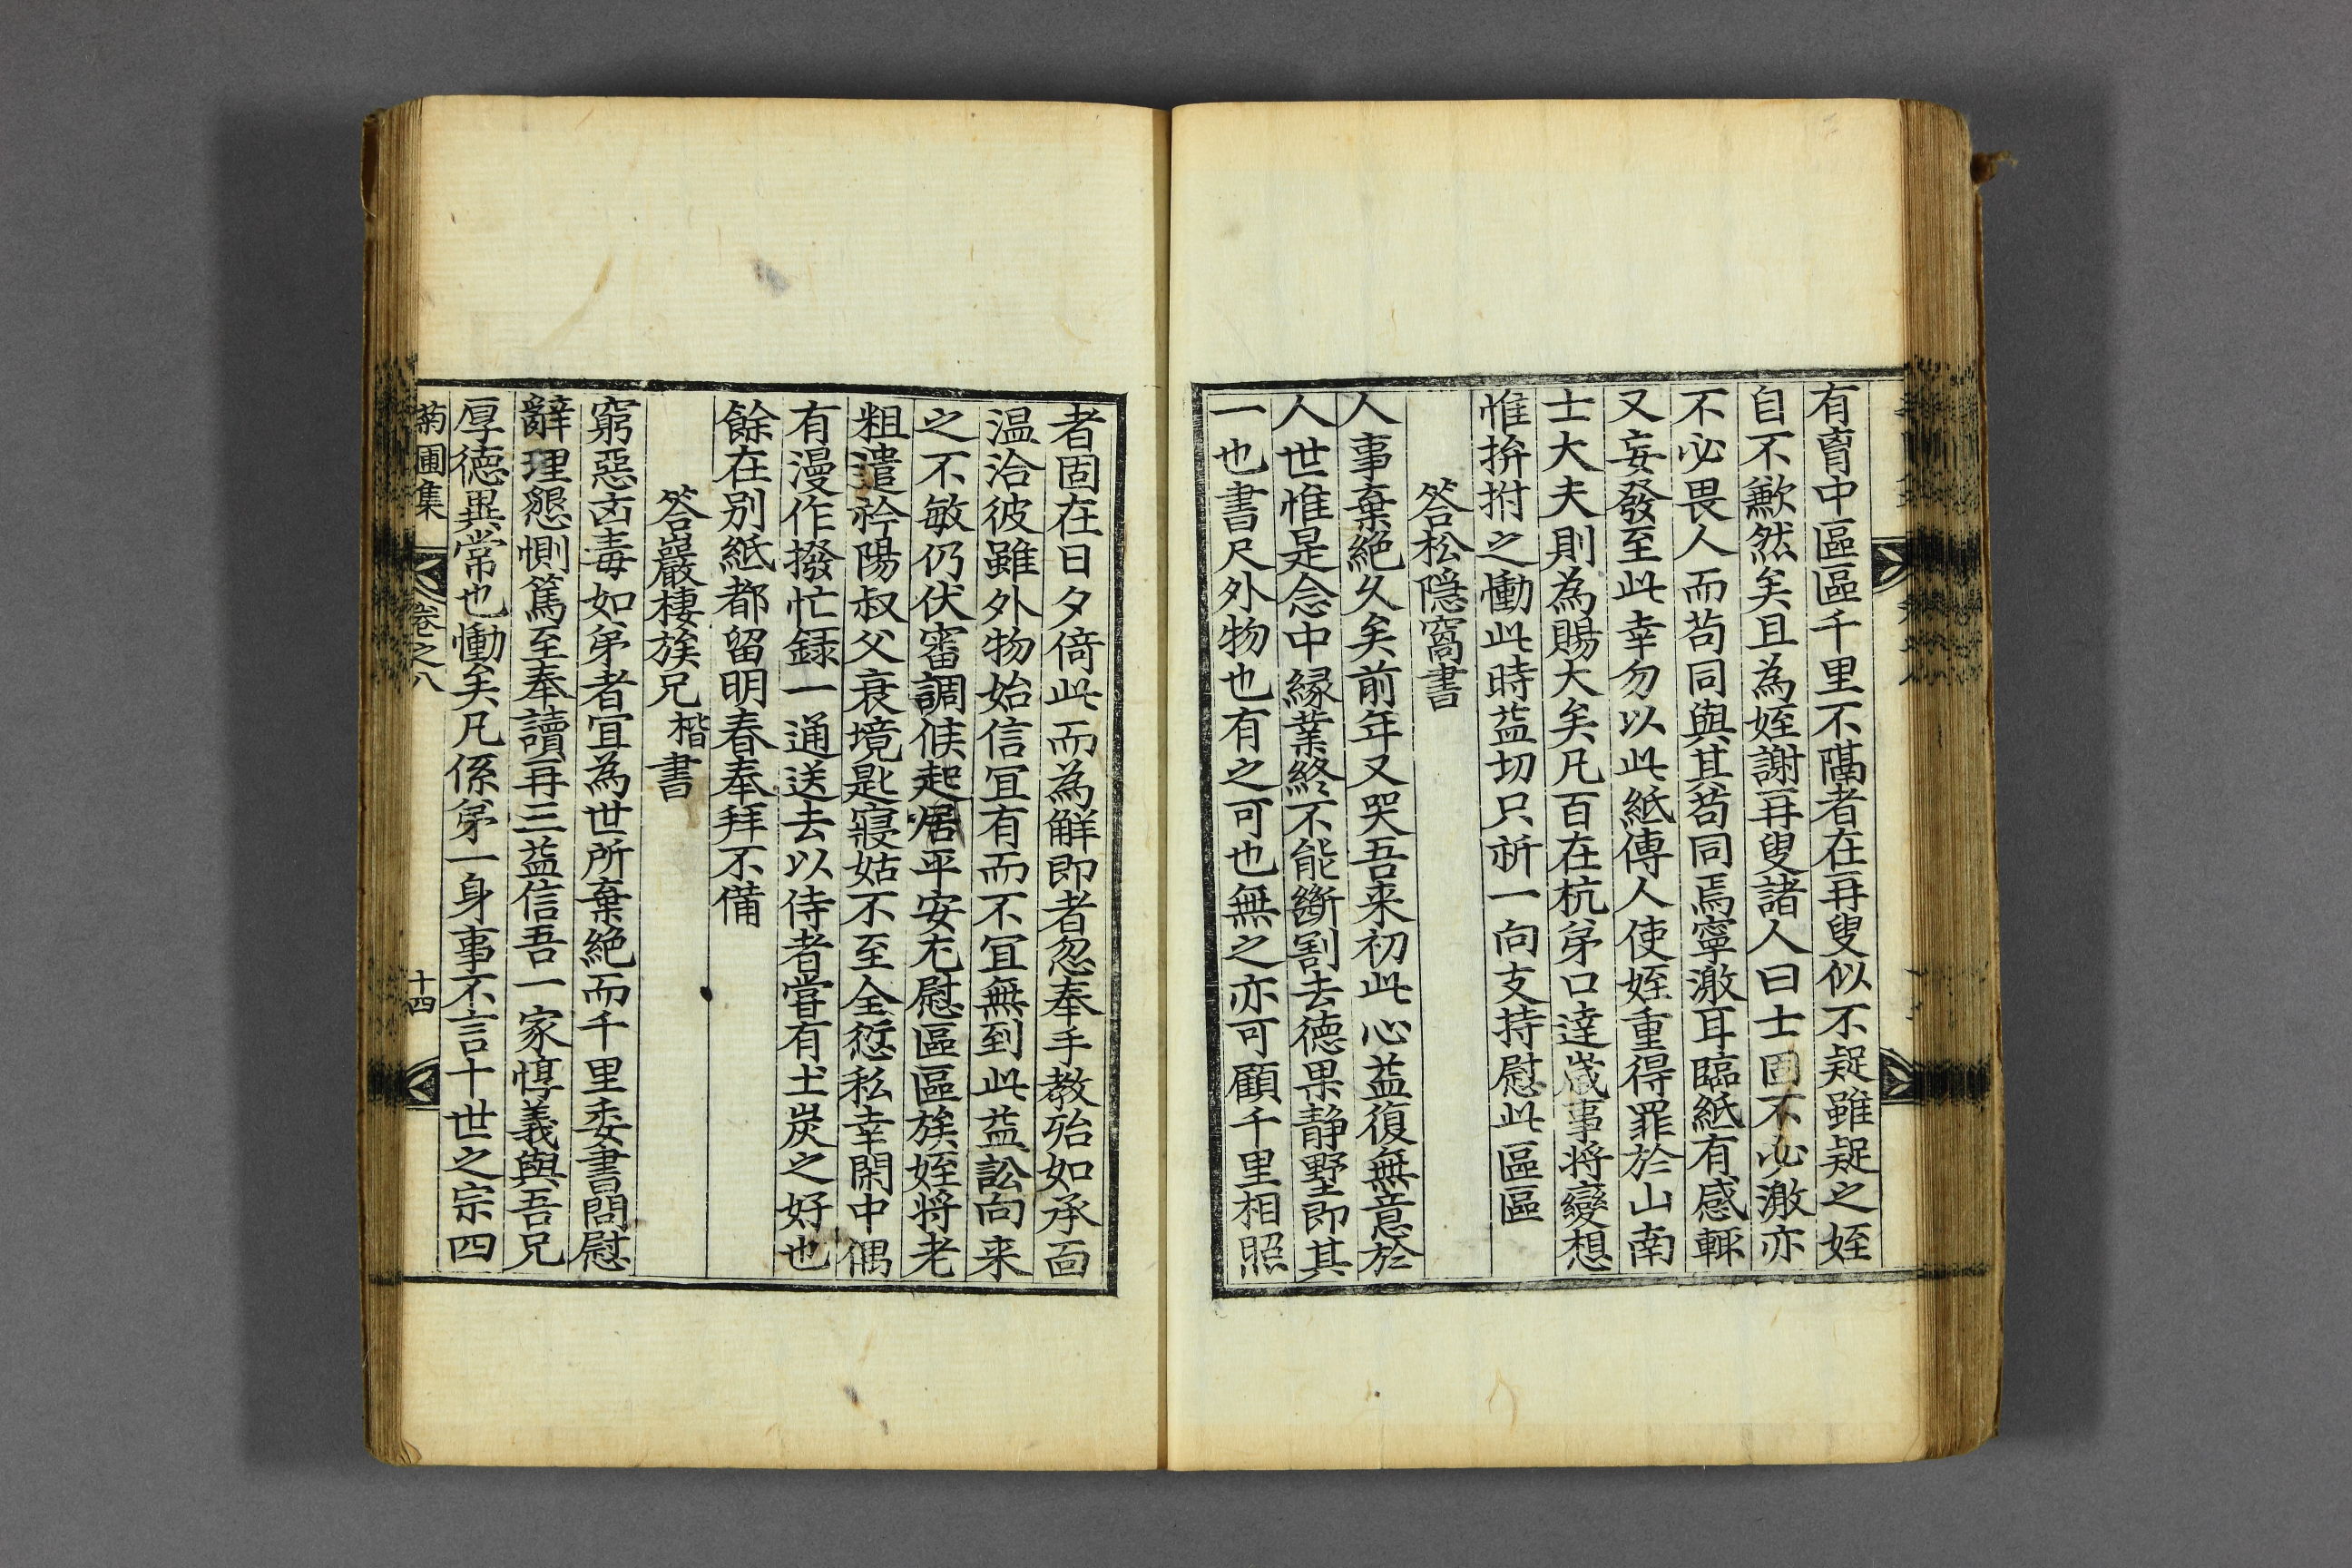 有育中區區千里不隔者在再叟似不疑雖疑之姪
自不歉然矣且為姪謝再叟諸人曰士固不必激亦
不必畏人而苟同與其苟同焉寧激耳臨紙有感輒
又妄發至此幸勿以此紙傳人使姪重得罪於山南
士大夫則為賜大矣凡百在杭弟口達歲事將變想
惟拚拊之慟此時益切只祈一向支持慰此區區
答松隱窩書
人事棄絶久矣前年又哭吾來初此心益復無意於
人世惟是念中緣業終不能斷割去德果靜墅即其
一也書尺外物也有之可也無之亦可顧千里相照
者固在日夕倚此而為解即者忽奉手教殆如承面
温洽彼雖外物始信冝有而不冝無到此益訟向来
之不敏仍伏審調候起居平安尤慰區區族姪將老
粗遣衿陽叔父衰境匙寢姑不至全愆私幸閑中偶
有漫作撥忙録一通送去以侍者嘗有土炭之好也
餘在别紙都留明春奉拜不備
答巖棲族兄楷書
窮惡凶毒如弟者冝為世所棄絶而千里委書問慰
辭理懇惻篤至奉讀再三益信吾一家惇義與吾兄
厚德異常也慟矣凡係弟一身事不言十世之宗四
菊圃集 卷之八 十四